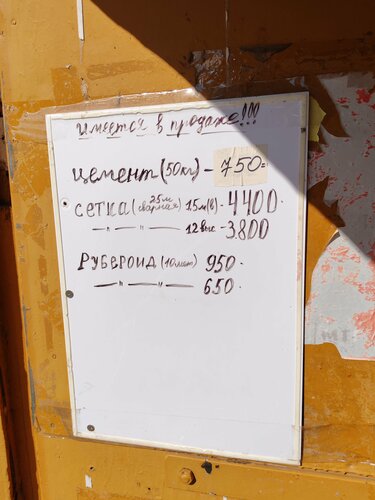 имеется в продаже!!!
цемент (50кг) - 750=
сетка (25м сварная) 1.5м(в) - 4400-
— " — " — 1.2 выс - 3.800
Рубероид (10мет) 950-
— " — " — 650-